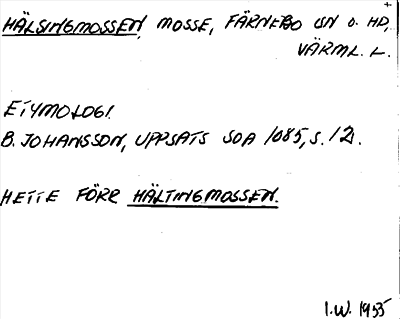 HÄLSINGMOSSEN, MOSSE, FÄRNEBO SN O. HD,
VÄRML. L.
ETYMOLOGI.
B. JOHANSSON, UPPSATS SOA 1085, S. 12.
HETTE FÖRR HÄLTINGMOSSEN.
I.W. 1955